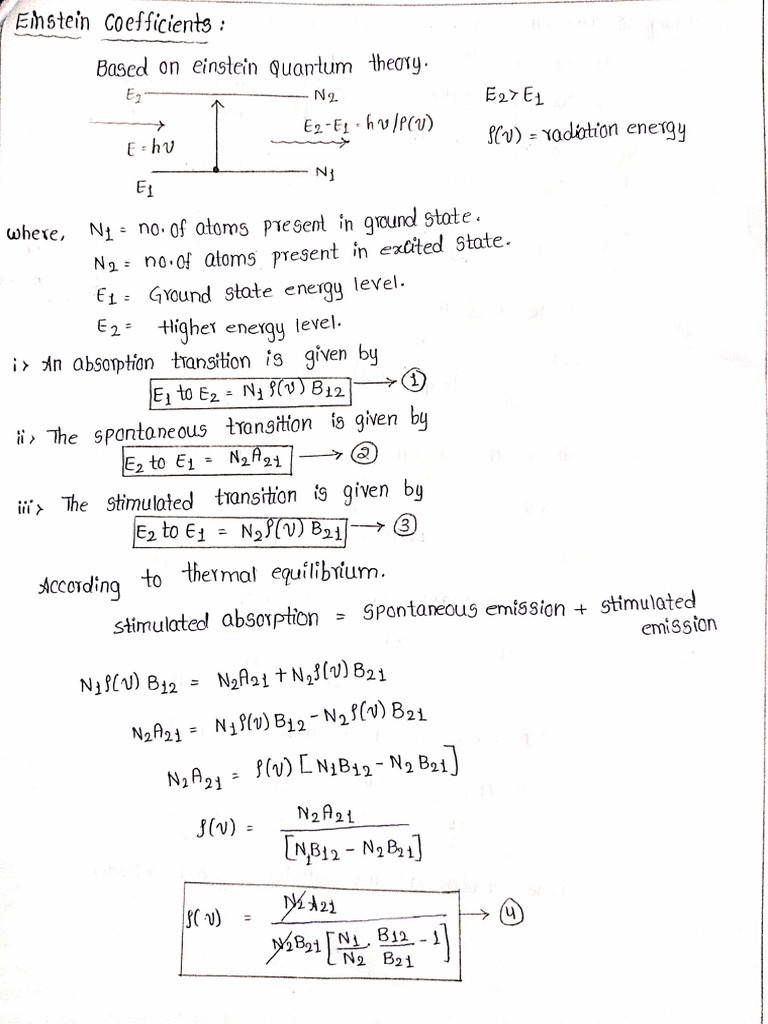 Einstein Coefficients :
Based on einstein Quantum theory.
E2 N2
E = hν
E2-E1 = hν/ρ(ν)
E1 N1
E2 > E1
ρ(ν) = radiation energy
where, N1 = no. of atoms present in ground state.
N2 = no. of atoms present in excited state.
E1 = Ground state energy level.
E2 = Higher energy level.
i> An absorption transition is given by
E1 to E2 = N1 ρ(ν) B12 → ①
ii> The spontaneous transition is given by
E2 to E1 = N2A21 → ②
iii> The stimulated transition is given by
E2 to E1 = N2 ρ(ν) B21 → ③
According to thermal equilibrium.
stimulated absorption = spontaneous emission + stimulated
emission
N1 ρ(ν) B12 = N2A21 + N2 ρ(ν) B21
N2A21 = N1 ρ(ν) B12 - N2 ρ(ν) B21
N2A21 = ρ(ν) [N1B12 - N2B21]
ρ(ν) = N2A21 / [N1B12 - N2B21]
ρ(ν) = N2A21 / N2B21 [N1/N2 . B12/B21 - 1] → ④